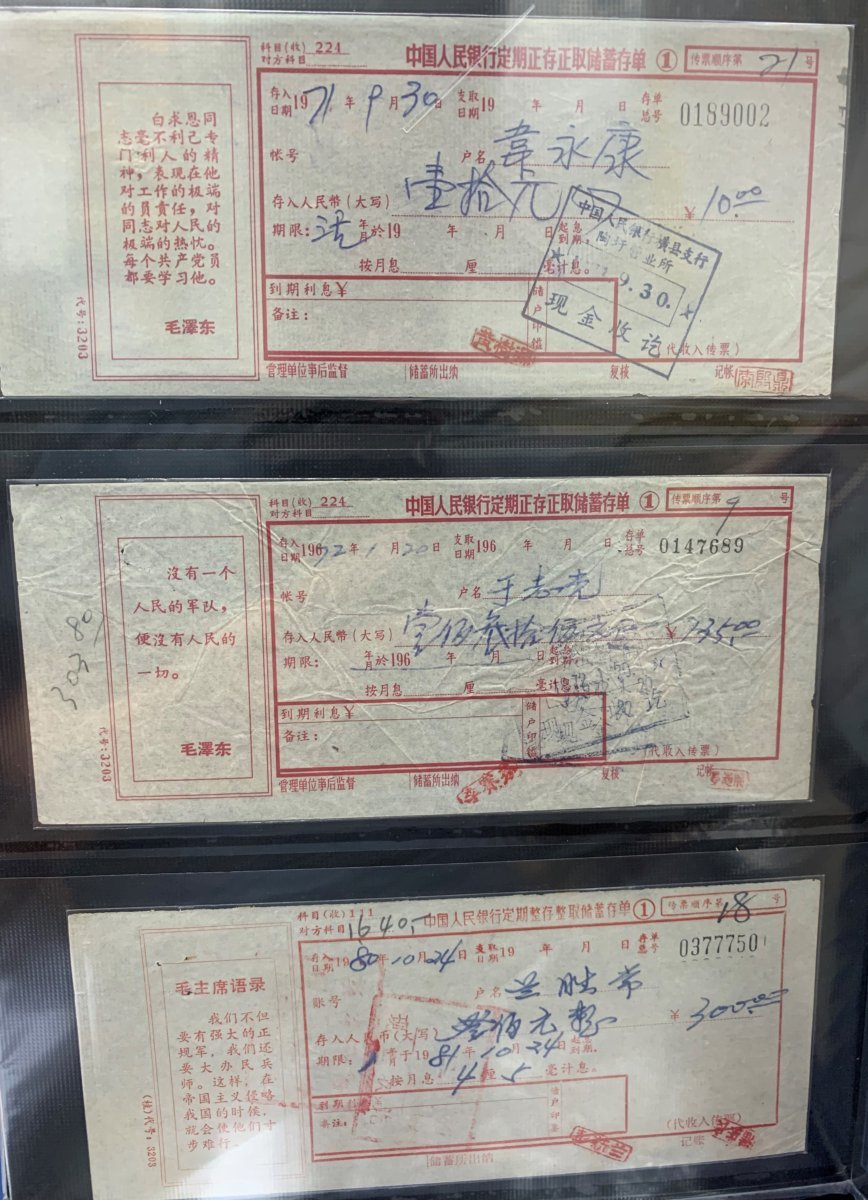 科目(收) 224
对方科目
中国人民银行定期正存正取储蓄存单 ①
传票顺序第 21 号
白求恩同
志毫不利己专
门利人的精
神，表现在他
对工作的极端
的员责任，对
同志对人民的
极端的热忱。
每个共产党员
都要学习他。
毛泽东
代号：3203
存入日期 1971年9月30 支取日期 19 年 月 日 存单总号 0189002
帐号 户名 韋永康
存入人民幣（大写） 壹拾元 ¥ 10.00
期限：活 年月於19 年 月 日 起息到期。
按月息 厘 毫计息。
中国人民銀行横县支行
营业所
9.30.
现金收讫
到期利息¥
备注：
储户印鉴
(代收入传票)
管理单位事后监督 储蓄所出纳 复核 记帐
科目(收) 224
对方科目
中国人民銀行定期正存正取储蓄存单 ①
传票顺序第 9 号
沒有一个
人民的军队，
便沒有人民的
一切。
毛澤东
代号：3203
存入日期 19672年1月20日 支取日期 196 年 月 日 存单总号 0147689
帐号 户名
存入人民幣（大写） ¥
期限： 年月於196 年 月 日 起息到期。
按月息 厘 毫计息。
到期利息¥
备注：
储户印鉴
(代收入传票)
管理单位事后监督 储蓄所出纳 复核 记帐
科目(收) 111
对方科目
中国人民銀行定期整存整取储蓄存单 ①
传票顺序第 18 号
毛主席语录
我们不但
要有强大的正
规军，我们还
要大办民兵
师。这样，在
帝国主义侵略
我国的时候，
就会使他们寸
步难行。
代号：3203
存入日期 1980年10月24日 支取日期 19 年 月 日 存单总号 0377750
账号 户名
存入人民币(大写) 叁佰元整 ¥ 300.00
期限：1 年月于1981年10月24日 起息到期.
按月息 4 厘 5 毫计息。
到期利息
备注：
储户印鉴
(代收入传票)
储蓄所出纳 记账